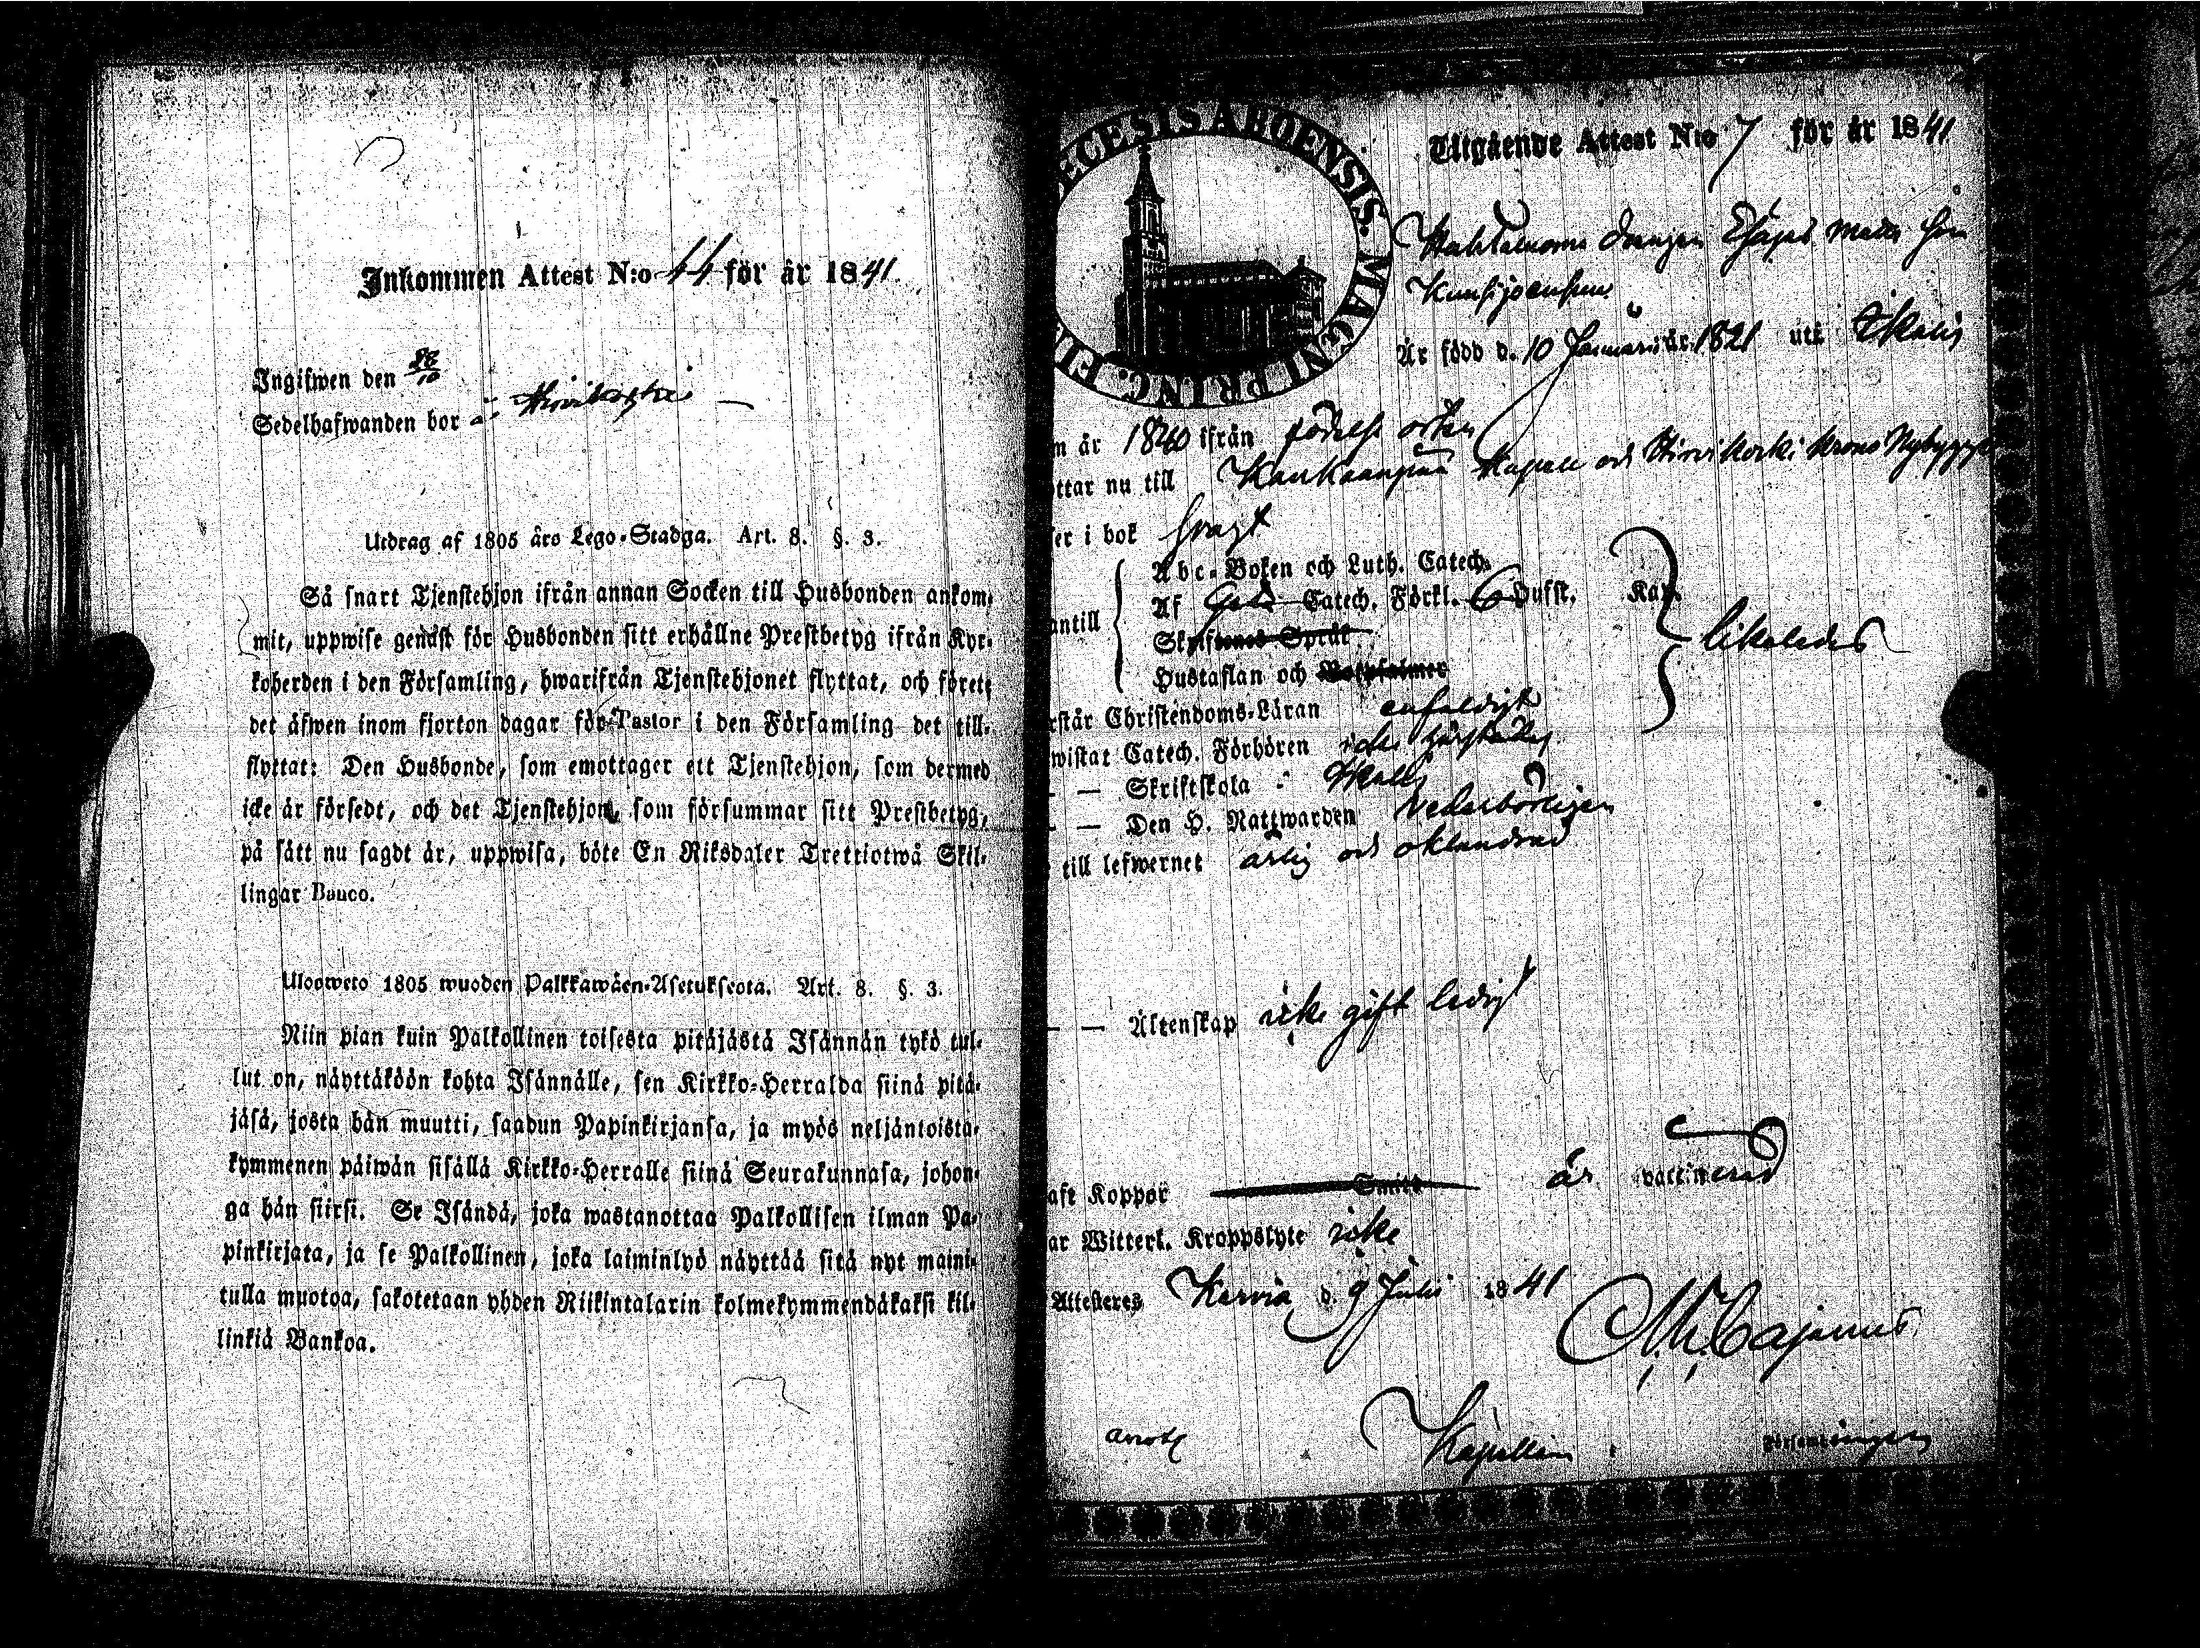 Inkommen Attest N:o 44 för år 1841.
Ingifwen den 28/10
Sedelhafwanden bor å
Utdrag af 1805 års Lego-Stadga. Art. 8. §. 3.
Så snart Tjenstehjon ifrån annan Socken till Husbonden ankom-
mit, uppwise genast för Husbonden sitt erhållne Prestbetyg ifrån Kyr-
koherden i den Församling, hwarifrån Tjenstehjonet flyttat, och förete
det äfwen inom fjorton dagar för Pastor i den Församling det till-
flyttat: Den Husbonde, som emottager ett Tjenstehjon, som dermed
icke är försedt, och det Tjenstehjon, som försummar sitt Prestbetyg,
på sätt nu sagdt är, uppwisa, böte En Riksdaler Trettiotwå Skil-
lingar Banco.
Uloosweto 1805 wuoden Palkkawäen-Asetuksesta. Art. 8. §. 3.
Niin pian kuin Palkollinen toisesta pitäjästä Isännän tykö tul-
lut on, näyttäköön kohta Isännälle, sen Kirkko-Herralda siinä pitä-
jäsä, josta hän muutti, saadun Papinkirjansa, ja myös neljäntoista-
kymmenen päiwän sisällä Kirkko-Herralle siinä Seurakunnasa, johon-
ga hän siirsi. Se Isändä, joka wastanottaa Palkollisen ilman Pa-
pinkirjata, ja se Palkollinen, joka laiminlyö näyttää sitä nyt maini-
tulla muotoa, sakotetaan yhden Riikintalarin kolmekymmendäkaksi kil-
linkiä Bankoa.
ECESIS ABOENSIS. MAGNI PRINC. FIN
Utgående Attest N:o 7 för år 1841
drengen Esajas
Är född d. 10 Januarii år 1821 uti Ikalis
m år 1840 ifrån födelse orten
ttar nu till Kankaanpää Kapell och Hirvikoski Krono Nybygge
er i bok svagt
antill
Abc-Boken och Luth. Catech.
Af Catech. Förkl. Hufst. Kap.
Skriftenes Språk
Hustaflan och Botpsalmer
likaledes
rstår Christendoms-Läran enfaldigt
wistat Catech. Förhören icke
— — Skriftskola
— — Den H. Nattwarden vederbörligen
till lefwernet ärlig och oklandrad
— — Äktenskap icke gift ledig
aft Koppor Smitt är vaccinerad
ar Witterl. Kroppslyte icke
Attesteres Karvia d. 9 Julii 1841
M. Cajanus
Kapellan i församlingen